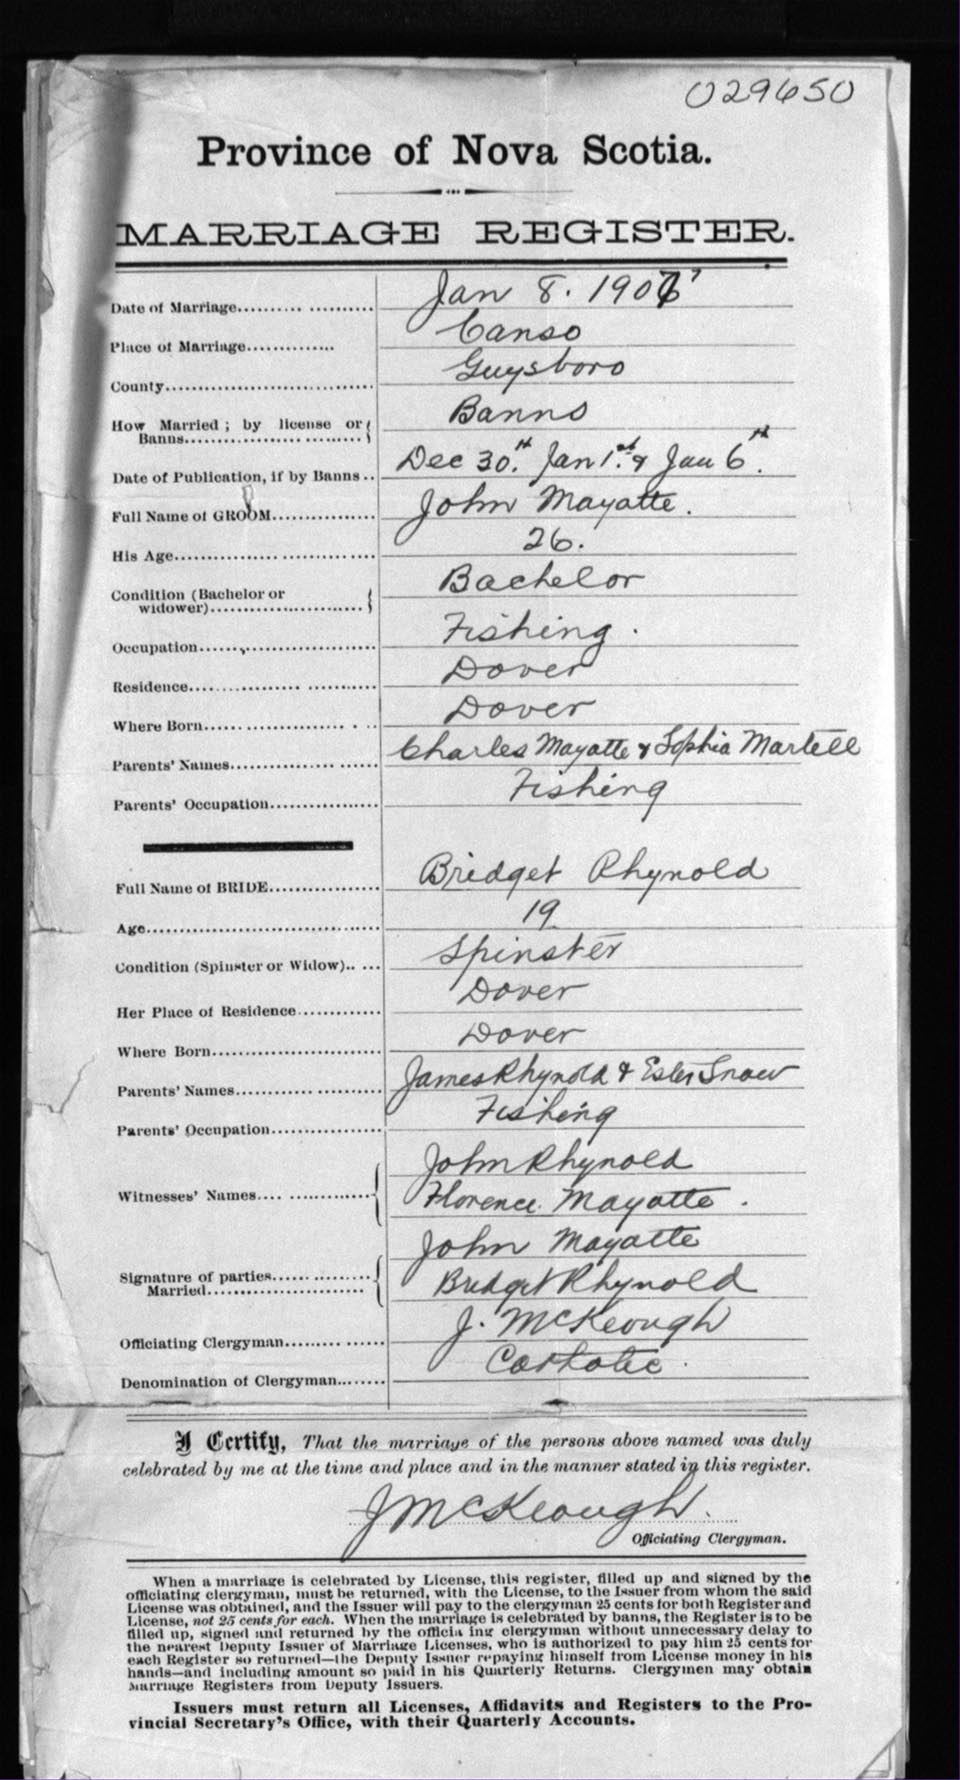 029650
Province of Nova Scotia.
MARRIAGE REGISTER.
Date of Marriage.................... Jan 8. 1907
Place of Marriage............. Canso
County.............................. Guysboro
How Married ; by license or Banns.............................. Banns
Date of Publication, if by Banns.. Dec 30th. Jan 1st. & Jan 6th.
Full Name of GROOM............... John Mayatte.
His Age............................. 26.
Condition (Bachelor or widower)........................ Bachelor
Occupation......................... Fishing.
Residence.......................... Dover
Where Born........................ Dover
Parents' Names.................... Charles Mayatte & Sophia Martell
Parents' Occupation................ Fishing
Full Name of BRIDE................ Bridget Rhynold
Age................................... 19
Condition (Spinster or Widow)..... Spinster
Her Place of Residence............. Dover
Where Born......................... Dover
Parents' Names..................... James Rhynold & Ester Snow
Parents' Occupation................ Fishing
Witnesses' Names.................. John Rhynold
Florence Mayatte.
Signature of parties................ John Mayatte
Married......................... Bridget Rhynold
Officiating Clergyman............... J. McKeough
Denomination of Clergyman........ Catholic.
I Certify, That the marriage of the persons above named was duly
celebrated by me at the time and place and in the manner stated in this register.
J McKeough.
Officiating Clergyman.
When a marriage is celebrated by License, this register, filled up and signed by the
officiating clergyman, must be returned, with the License, to the Issuer from whom the said
License was obtained, and the Issuer will pay to the clergyman 25 cents for both Register and
License, not 25 cents for each. When the marriage is celebrated by banns, the Register is to be
filled up, signed and returned by the officia ing clergyman without unnecessary delay to
the nearest Deputy Issuer of Marriage Licenses, who is authorized to pay him 25 cents for
each Register so returned—the Deputy Issuer repaying himself from License money in his
hands—and including amount so paid in his Quarterly Returns. Clergymen may obtain
Marriage Registers from Deputy Issuers.
Issuers must return all Licenses, Affidavits and Registers to the Pro-
vincial Secretary's Office, with their Quarterly Accounts.